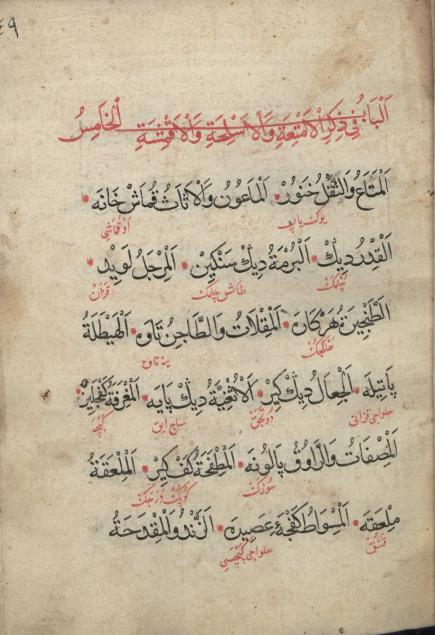 ٤٩
الْبَابُ الْخَامِسُ فِي ذِكْرِ الْاَمْتِعَةِ وَالْاَسْلِحَةِ وَالْاَقْمِشَةِ
اَلْمَتَاعُ وَالثَّقَلُ خُنُورْ • اَلْمَاعُونُ وَالْاَثَاثُ قُمَاشِ خَانَه •
اَلْقِدْرُ دِيكْ • اَلْبُرْمَةُ دِيكِ سَنْكِينْ • اَلْمِرْجَلُ لَوِيدْ •
چلمك طاش چلمك قزغان
اَلطِّنْجِيرُ • اَلْمِقْلَاتُ وَالطَّاجِنُ تَاوَه • اَلْهَيْطَلَةُ
ينه تاوه
پَاتِيلَه • اَلْجِعَالُ دِيكْ كِيرْ • اَلْاُثْفِيَّةُ دِيكْ پَايَه • اَلْمِغْرَفَةُ كَفْچَلِيزْ •
حلواجى قزانى ساج اياق كپچه
اَلْمِصْفَاتُ وَالرَّاوُوقُ پَالُونَه • اَلْمِطْفَحَةُ كَفْ كِيرْ • اَلْمِلْعَقَةُ
سوزك
مِلْعَقَه • اَلْمِسْوَاطُ كَفْچَهٔ عَصِيدَه • اَلزَّنْدُ وَالْمِقْدَحَةُ
قشق حلواجى كپچه سى